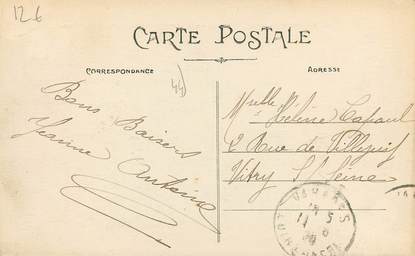 126
CARTE POSTALE
CORRESPONDANCE
ADRESSE
44)
Bons Baisers
Jeanne Antoine
Melle Hélène Capoul
2 Rue de Villejuif
Vitry S/ Seine